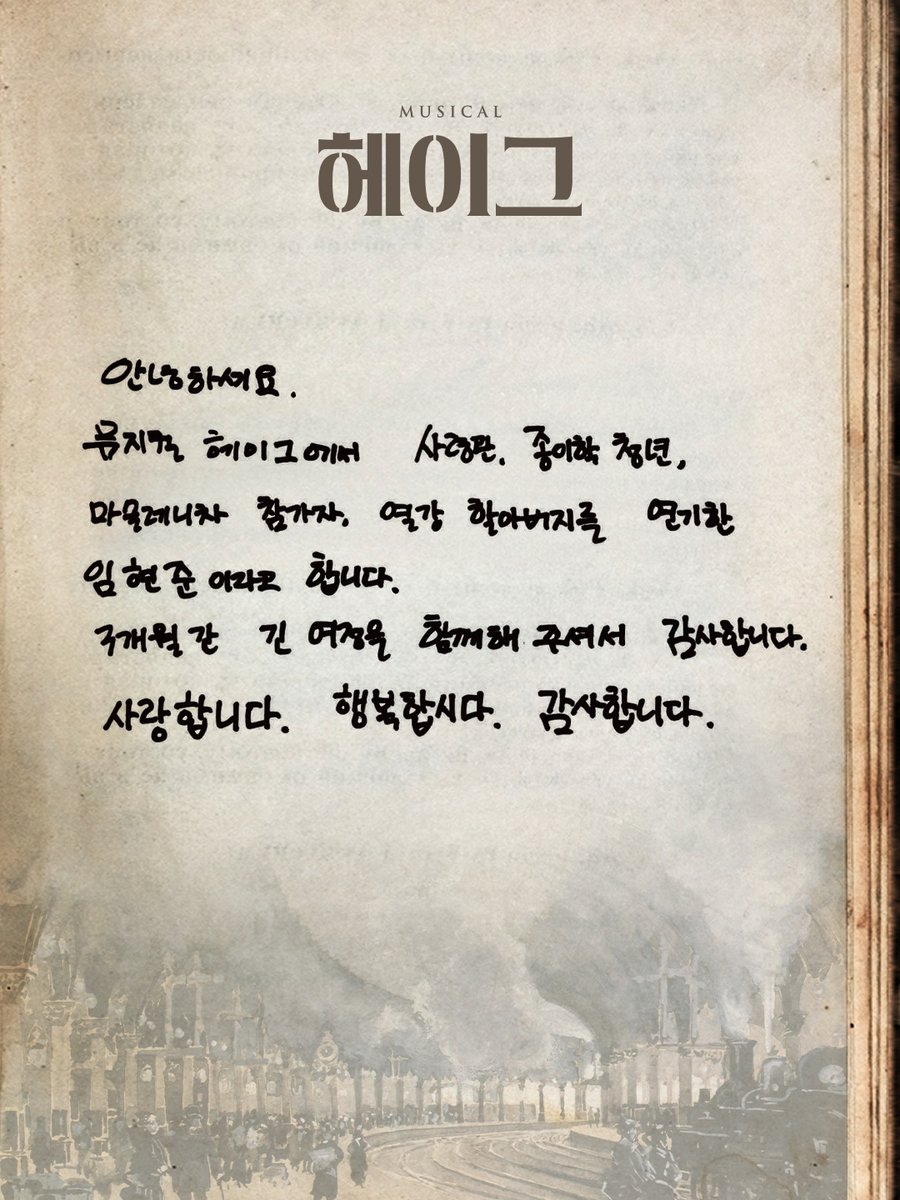 MUSICAL
헤이그
안녕하세요.
뮤지컬 헤이그에서 사령관, 종이학 청년,
마슬레니차 참가자, 열강 할아버지를 연기한
임현준 이라고 합니다.
3개월간 긴 여정을 함께해 주셔서 감사합니다.
사랑합니다. 행복합시다. 감사합니다.